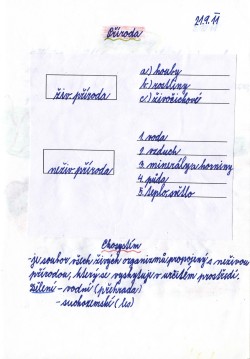 21.9.11
Příroda
a) houby
živ. příroda
b) rostliny
c) živočichové
1. voda
2. vzduch
neživ. příroda
3. minerály a horniny
4. půda
5. teplo, světlo
Ekosystém
- je soubor všech živých organizmů propojený s neživou
přírodou, který se vyskytuje v určitém prostředí.
Dělení - vodní (přehrada)
- suchozemský (les)